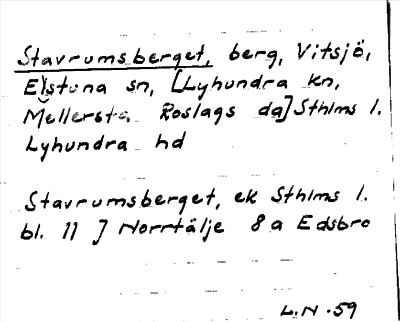 Stavrumsberget, berg, Vitsjö,
Estuna sn, [Lyhundra kn,
Mellersta Roslags da] Sthlms l.
Lyhundra hd
Stavrumsberget, ek Sthlms l.
bl. 11 ] Norrtälje 8a Edsbro
L.N. 59